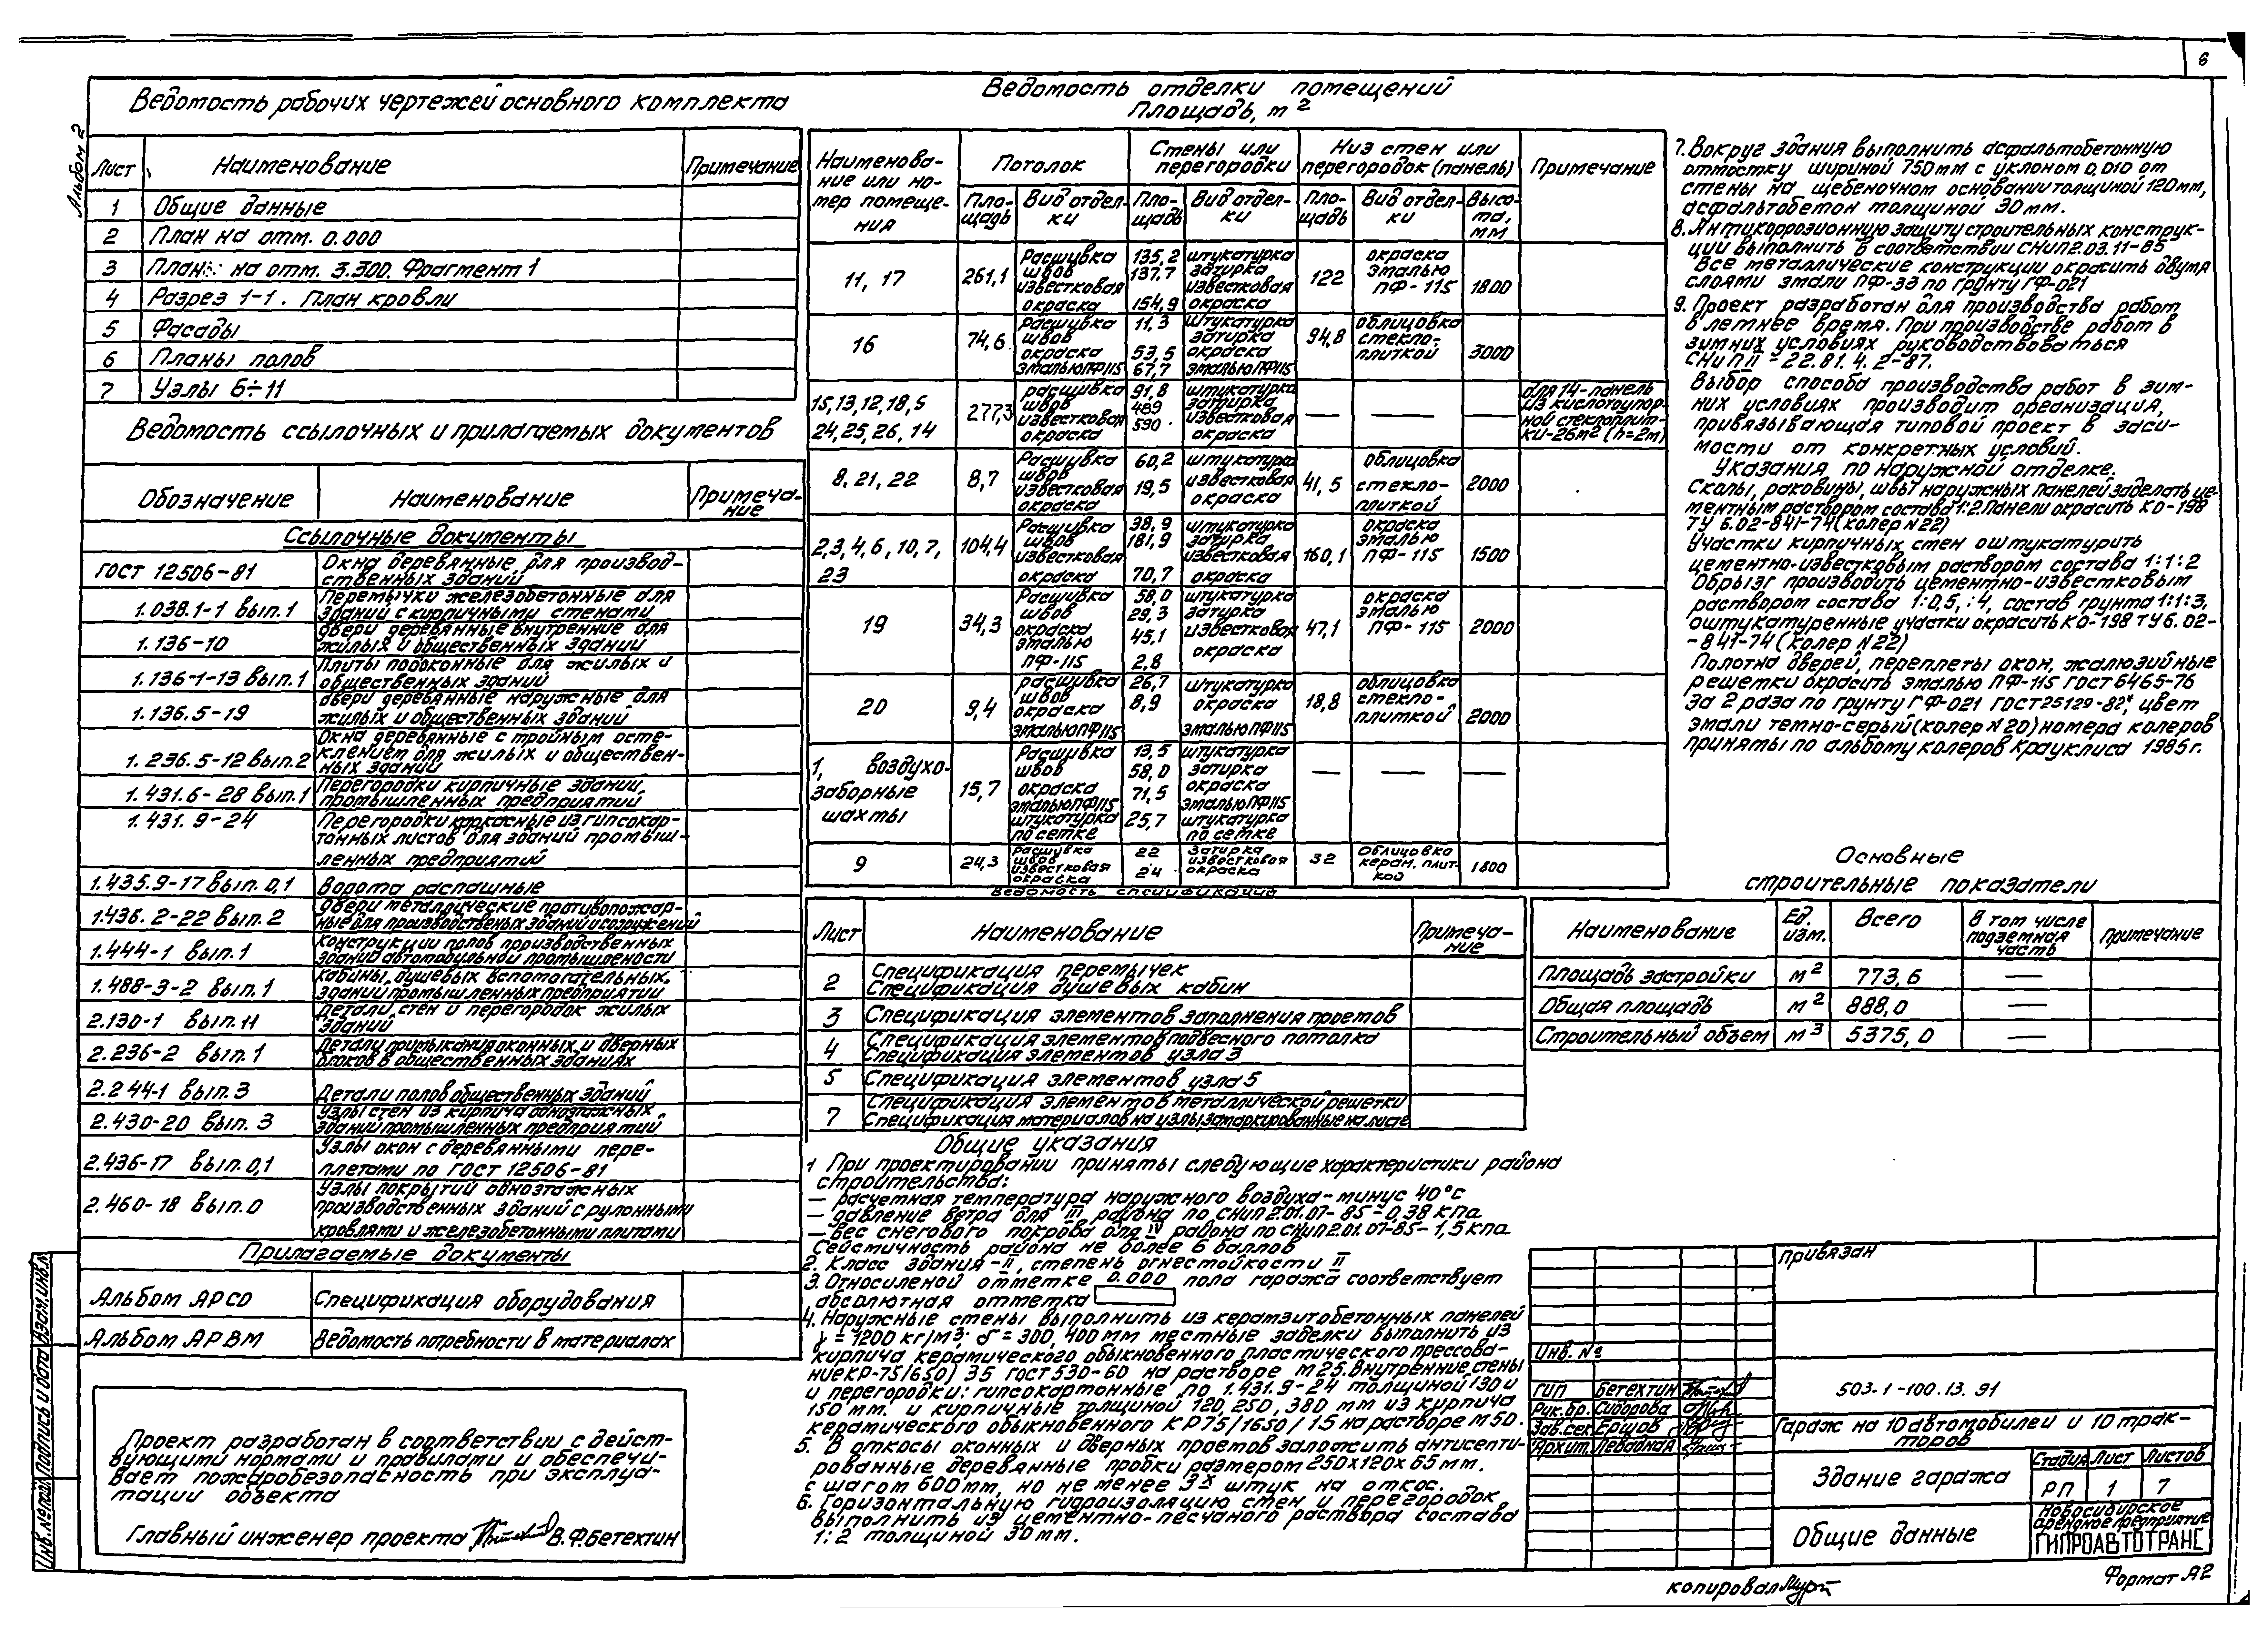 6
Альбом 2
Ведомость рабочих чертежей основного комплекта
Лист Наименование Примечание
1 Общие данные
2 План на отм. 0.000
3 План на отм. 3.300. Фрагмент 1
4 Разрез 1-1. План кровли
5 Фасады
6 Планы полов
7 Узлы 6÷11
Ведомость ссылочных и прилагаемых документов
Обозначение Наименование Примеча-
ние
Ссылочные документы
ГОСТ 12506-81 Окна деревянные для производ-
ственных зданий
1.038.1-1 вып.1 Перемычки железобетонные для
зданий с кирпичными стенами
1.136-10 двери деревянные внутренние для
жилых и общественных зданий
1.136-1-13 вып.1 Плиты подоконные для жилых и
общественных зданий
1.136.5-19 двери деревянные наружные для
жилых и общественных зданий
1.236.5-12 вып.2 Окна деревянные с тройным осте-
клением для жилых и обществен-
ных зданий
1.431.6-28 вып.1 Перегородки кирпичные зданий,
промышленных предприятий
1.431.9-24 Перегородки каркасные из гипсокар-
тонных листов для зданий промыш-
ленных предприятий
1.435.9-17 вып. 0,1 Ворота распашные
1.436.2-22 вып.2 двери металлические противопожар-
ные для производственых зданий и сооружений
1.444-1 вып.1 Конструкции полов производственных
зданий автомобильной промышлености
1.488-3-2 вып.1 Кабины, душевых вспомогательных,
зданий промышленных предприятий
2.130-1 вып.11 Детали, стен и перегородок жилых
зданий
2.236-2 вып.1 Детали примыкания оконных, и дверных
блоков в общественных зданиях
2.244-1 вып.3 Детали полов общественных зданий
2.430-20 вып. 3 Узлы стен из кирпича одноэтажных
зданий промышленных предприятий
2.436-17 вып.0,1 Узлы окон с деревянными пере-
плетами по ГОСТ 12506-81
2.460-18 вып.0 Узлы покрытий одноэтажных
производственных зданий с рулонными
кровлями и железобетонными плитами
Прилагаемые документы
Альбом АРСО Спецификация оборудования
Альбом АРВМ Ведомость потребности в материалах
Проект разработан в соответствии с дейст-
вующими нормами и правилами и обеспечи-
вает пожаробезопасность при эксплуа-
тации объекта
Главный инженер проекта В.Ф.Бетехтин
Инв.№ подл. Подпись и дата Взам.инв.№
Ведомость отделки помещений
Площадь, м²
Наименова-
ние или но-
мер помеще-
ния
Потолок
Стены или
перегородки
Низ стен или
перегородок (панель)
Примечание
Пло-
щадь
Вид отдел-
ки
Пло-
щадь
Вид отдел-
ки
Пло-
щадь
Вид отдел-
ки
Высо-
та,
мм
11, 17 261,1
Расшивка 135,2 штукатурка окраска
швов 137,7 затирка 122 эмалью
известковая известковая ПФ-115 1800
окраска 154,9 окраска
16 74,6
Расшивка 11,3 штукатурка облицовка
швов затирка 94,8 стекло-
окраска 53,5 окраска плиткой 3000
эмалью ПФ115 67,7 эмалью ПФ115
15,13,12,18,5
24,25,26,14
277,3
расшивка 91,8 штукатурка
швов 489 затирка — — —
известковая 590 известковая
окраска окраска
для 14-панель
из кислотоупор-
ной стеклоплит-
ки-26м² (h=2м)
8, 21, 22 8,7
Расшивка 60,2 штукатурка облицовка
швов известковая 19,5 известковая 41,5 стекло- 2000
окраска окраска плиткой
2,3,4,6,10,7,
23
104,4
Расшивка 38,9 штукатурка окраска
швов 181,9 затирка эмалью
известковая известковая 160,1 ПФ-115 1500
окраска 70,7 окраска
19 34,3
Расшивка 58,0 штукатурка окраска
швов 29,3 затирка эмалью
окраска 45,1 известковая 47,1 ПФ-115 2000
эмалью окраска
ПФ-115 2,8
20 9,4
расшивка 26,7 штукатурка облицовка
швов 8,9 окраска 18,8 стекло-
окраска плиткой 2000
эмалью ПФ115 эмалью ПФ115
1, воздухо-
заборные
шахты
15,7
Расшивка 13,5 штукатурка
швов 58,0 затирка — — —
окраска 71,5 окраска
эмалью ПФ115 эмалью ПФ115
штукатурка 25,7 штукатурка
по сетке по сетке
9 24,3
расшивка 22 Затирка 32 Облицовка
швов известковая керам. плит-
известковая 24 окраска кой 1800
окраска
Ведомость спецификаций
Лист Наименование Примеча-
ние
2 Спецификация перемычек
Спецификация душевых кабин
3 Спецификация элементов заполнения проемов
4 Спецификация элементов подвесного потолка
Спецификация элементов узла 3
5 Спецификация элементов узла 5
7 Спецификация элементов металлической решетки
Спецификация материалов на узлы замаркированные на листе
Общие указания
1 При проектировании приняты следующие характеристики района
строительства:
— расчетная температура наружного воздуха-минус 40°С
— давление ветра для III района по СНиП 2.01.07-85-0,38 кПа
— вес снегового покрова для IV района по СНиП 2.01.07-85-1,5 кПа
Сейсмичность района не более 6 баллов
2. Класс здания-II, степень огнестойкости II
3. Относиленой отметке 0.000 пола гаража соответствует
абсолютная отметка
4. Наружные стены выполнить из керамзитобетонных панелей
γ=1200 кг/м³; σ=300, 400мм местные заделки выполнить из
кирпича керамического обыкновенного пластического прессова-
ния КР-75/1650/35 ГОСТ 530-60 на растворе М25. Внутренние стены
и перегородки: гипсокартонные по 1.431.9-24 толщиной 130 и
150 мм. и кирпичные толщиной 120, 250, 380 мм из кирпича
керамического обыкновенного КР75/1650/15 на растворе М50.
5. В откосы оконных и дверных проемов заложить антисепти-
рованные деревянные пробки размером 250х120х65мм.
с шагом 600мм, но не менее 3х штук на откос.
6. Горизонтальную гидроизоляцию стен и перегородок
выполнить из цементно-песчаного раствора состава
1:2 толщиной 30мм.
7. Вокруг здания выполнить асфальтобетонную
отмостку шириной 750мм с уклоном 0,010 от
стены на щебеночном основании толщиной 120мм,
асфальтобетон толщиной 30мм.
8. Антикоррозионную защиту строительных конструк-
ций выполнить в соответствии СНиП2.03.11-85
Все металлические конструкции окрасить двумя
слоями эмали ПФ-33 по грунту ГФ-021
9. Проект разработан для производства работ
в летнее время. При производстве работ в
зимних условиях руководствоваться
СНиП II-22.81.4.2-87.
Выбор способа производства работ в зим-
них условиях производит организация,
привязывающая типовой проект в заси-
мости от конкретных условий.
Указания по наружной отделке.
Сколы, раковины, швы наружных панелей заделать це-
ментным раствором состава 1:2. Панели окрасить КО-198
ТУ 6.02-841-74 (колер N22)
Участки кирпичных стен оштукатурить
цементно-известковым раствором состава 1:1:2
Обрызг производить цементно-известковым
раствором состава 1:0,5,:4, состав грунта 1:1:3,
оштукатуренные участки окрасить КО-198 ТУ 6.02-
-841-74 (колер N22)
Полотна дверей, переплеты окон, жалюзийные
решетки окрасить эмалью ПФ-115 ГОСТ 6465-76
за 2 раза по грунту ГФ-021 ГОСТ25129-82*, цвет
эмали темно-серый (колер N20) номера колеров
приняты по альбому колеров Крауклиса 1985г.
Основные
строительные показатели
Наименование Ед.
изм. Всего В том числе
подземная
часть Примечание
Площадь застройки м² 773,6 —
Общая площадь м² 888,0 —
Строительный объем м³ 5375,0 —
привязан
Инв. №
ГИП Бетехтин
Рук.бр. Сидорова
Зав.сек Ершов
Архит. Левадная
503-1-100.13.91
Гараж на 10 автомобилей и 10 трак-
торов
Здание гаража
Стадия Лист Листов
РП 1 7
Общие данные
Новосибирское
арендное предприятие
ГИПРОАВТОТРАНС
копировал
Формат А2